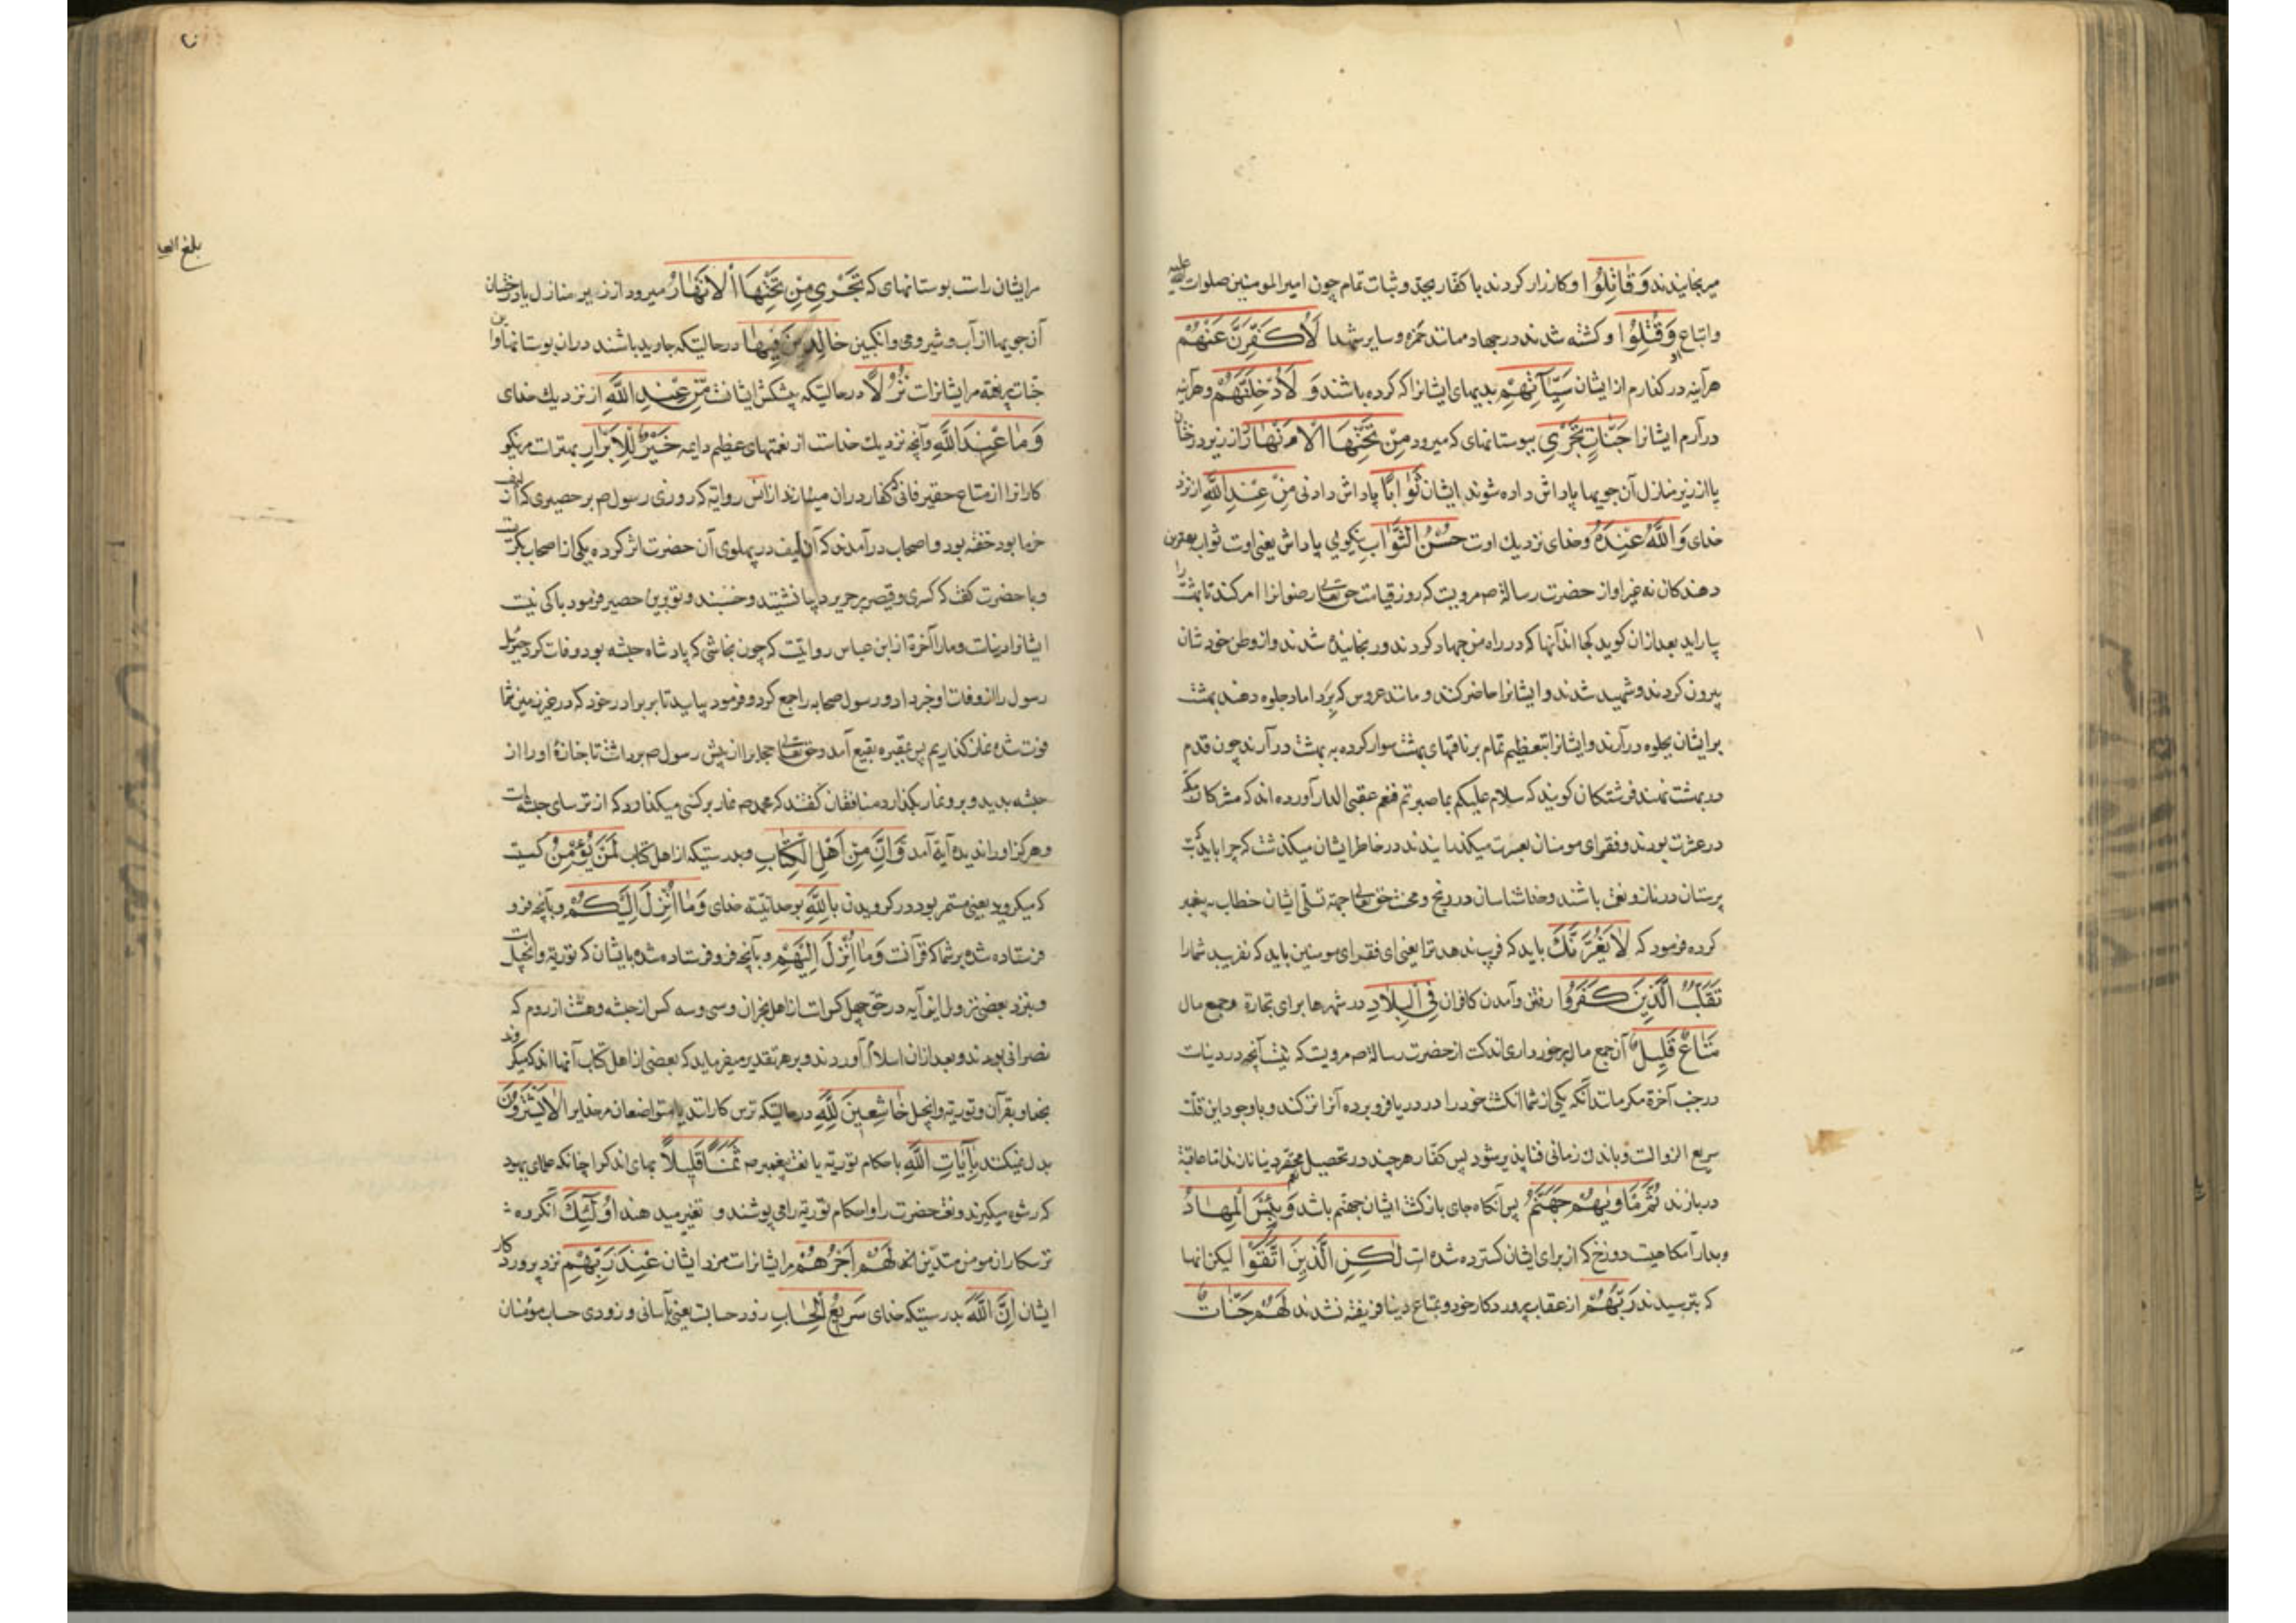 میرنجانیدند وَقَاتَلُوا و کارزار کردند با کفار بجد و ثبات تمام چون امیر المومنین صلوات الله علیه
واتباع او وَقُتِلُوا و کشته شدند در جهاد مانند حمزه و سایر شهدا لَأُكَفِّرَنَّ عَنْهُمْ
هرآینه درکذارم از ایشان سَيِّآتِهِمْ بدیهای ایشانرا که کرده باشند وَ لَأُدْخِلَنَّهُمْ و هرآینه
درآرم ایشانرا جَنَّاتٍ تَجْرِي ببوستانهای که میرود مِنْ تَحْتِهَا الْأَنْهَارُ از زیر درختان
یا از زیر منازل آن جویها پاداش داده شوند ایشان ثَوَابًا پاداش دادنی مِنْ عِنْدِ اللَّهِ از نزد
خدای وَاللَّهُ عِنْدَهُ و خدای نزدیك اوست حُسْنُ الثَّوَابِ نیکویی پاداش یعنی اوست ثواب بهترین
دهندکان نه غیر او از حضرت رسالة ص مرویست که روز قیامت حق تعالی رضوانرا امر کند تا بهشت را
بیاراید بعد از ان کوید کجا اند آنها که در راه من جهاد کردند و رنجانیده شدند و از وطن خودشان
بیرون کردند و شهید شدند و ایشانرا حاضر کنند و مانند عروس که بَرِ داماد جلوه دهند بهشت
بر ایشان بجلوه درآرند و ایشانرا بتعظیم تمام بر ناقهای بهشت سوار کرده به بهشت درآرند چون قدم
در بهشت نهند فرشتکان کویند که سلام علیکم بما صبرتم فنعم عقبی الدار آورده اند که مشرکان مکه
در عشرت بودند و فقرای مومنان بعسرت میکذرانیدند در خاطر ایشان میکذشت که چرا باید که بت
پرستان در ناز و نعمت باشند و خدا شناسان در رنج و محنت حق تعالی جهة تسلی ایشان خطاب به پیغمبر
کرده فرمود که لَا يَغُرَّنَّكَ باید که فریب ندهد ترا یعنی ای فقرای مومنین باید که نفریبد شمارا
تَقَلُّبُ الَّذِينَ كَفَرُوا رفتن و آمدن کافران فِي الْبِلَادِ در شهرها برای تجارة و جمع مال
مَتَاعٌ قَلِيلٌ آن جمع مال برخورداری اندکست از حضرت رسالة ص مرویست که نیست آنچه در دنیاست
در جنب آخرة مکر مانند آنکه یکی از شما انکشت خود را در دریا فرو برده آنرا تر کند و با وجود این قلت
سریع الزوالست و باندك زمانی فنا پذیر شود پس کفار هر چند در تحصیل محقر دنیا
دربازند ثُمَّ مَأْوٰيهُمْ جَهَنَّمُ پس آنکاه جای بازکشت ایشان جهنم باشد وَبِئْسَ الْمِهَادُ
و بد آرامکاهیست دوزخ که از برای ایشان کسترده شده است لٰكِنِ الَّذِينَ اتَّقَوْا لیکن انها
که بترسیدند رَبَّهُمْ از عقاب پروردکار خود و بمتاع دنیا فریفته نشدند لَهُمْ جَنَّاتٌ
بلغ
مر ایشانراست بوستانهای که تَجْرِي مِنْ تَحْتِهَا الْأَنْهَارُ میرود از زیر منازل یا درختان
آن جویها از آب و شیر و می و انکبین خَالِدِينَ فِيهَا درحالتیکه جاوید باشند در ان بوستانها و این
جنات مر ایشانراست نُزُلًا درحالتیکه پیشکش ایشانست مِنْ عِنْدِ اللَّهِ از نزدیك خدای
وَمَا عِنْدَ اللَّهِ و آنچه نزدیك خداست از نعمتهای عظیم دایمه خَيْرٌ لِلْأَبْرَارِ بهترست مر نیکو
کارانرا از متاع حقیر فانی که کفار دران میسازند از انس روایة که روزی رسول ص بر حصیری که از لیف
خرما بود خفته بود و اصحاب درآمدند که آن لیف در پهلوی آن حضرت اثر کرده یکی از اصحاب بکریست
و با حضرت کفت که کسری و قیصر بر حریر و دیبا نشینند و خسبند و تو برین حصیر فرمود باکی نیست
ایشانرا دنیاست و مارا آخرة از ابن عباس روایتست که چون نجاشی که پادشاه حبشه بود وفات کرد جبرئیل
رسول را از وفات او خبر داد و رسول صحابه را جمع کرد و فرمود بیایید تا بر برادر خود که در غیر زمین شما
فوت شده نماز کذاریم پس بمقبره بقیع آمد و حق تعالی حجابرا از پیش رسول ص برداشت تا جنازهٔ او را از
حبشه بدید و برو نماز بکذارد منافقان کفتند که محمد ص نماز بر کسی میکذارد که از ترسای حبشه است
و هرکز او را ندیده آیة آمد وَإِنَّ مِنْ أَهْلِ الْكِتَابِ و بدرستیکه از اهل کتاب لَمَنْ يُؤْمِنُ کسیست
که میکرود یعنی مستمر بود در کرویدن بِاللَّهِ بوحدانیة خدای وَمَا أُنْزِلَ إِلَيْكُمْ و بآنچه فرو
فرستاده شده بر شما که قرآنست وَمَا أُنْزِلَ إِلَيْهِمْ و بآنچه فرو فرستاده شده بایشان که توریة و انجیل است
و بنزد بعضی نزول این آیه در حق چهل کس است از اهل نجران و سی و سه کس از حبشه و هشت از روم که
نصرانی بودند و بعد از ان اسلام آوردند و بر هر تقدیر میفرماید که بعضی از اهل کتاب آنها اند که میکروند
بخدا و بقرآن و توریة و انجیل خَاشِعِينَ لِلَّهِ درحالتیکه ترس کارانند یا متواضعان مر خدایرا لَا يَشْتَرُونَ
بدل نمیکنند بِآيَاتِ اللَّهِ باحکام توریة یا نعت پیغمبر ص ثَمَنًا قَلِيلًا بهای اندكرا چنانکه علمای یهود
که رشوه میکیرند و نعت حضرت را و احکام توریة را می پوشند و تغیر میدهند أُولٰئِكَ آنکروه
ترسکاران مومن متدین اند لَهُمْ أَجْرُهُمْ مر ایشانراست مزد ایشان عِنْدَ رَبِّهِمْ نزد پروردکار
ایشان إِنَّ اللَّهَ بدرستیکه خدای سَرِيعُ الْحِسَابِ زود حسابست یعنی بآسانی و زودی حساب مؤمنان